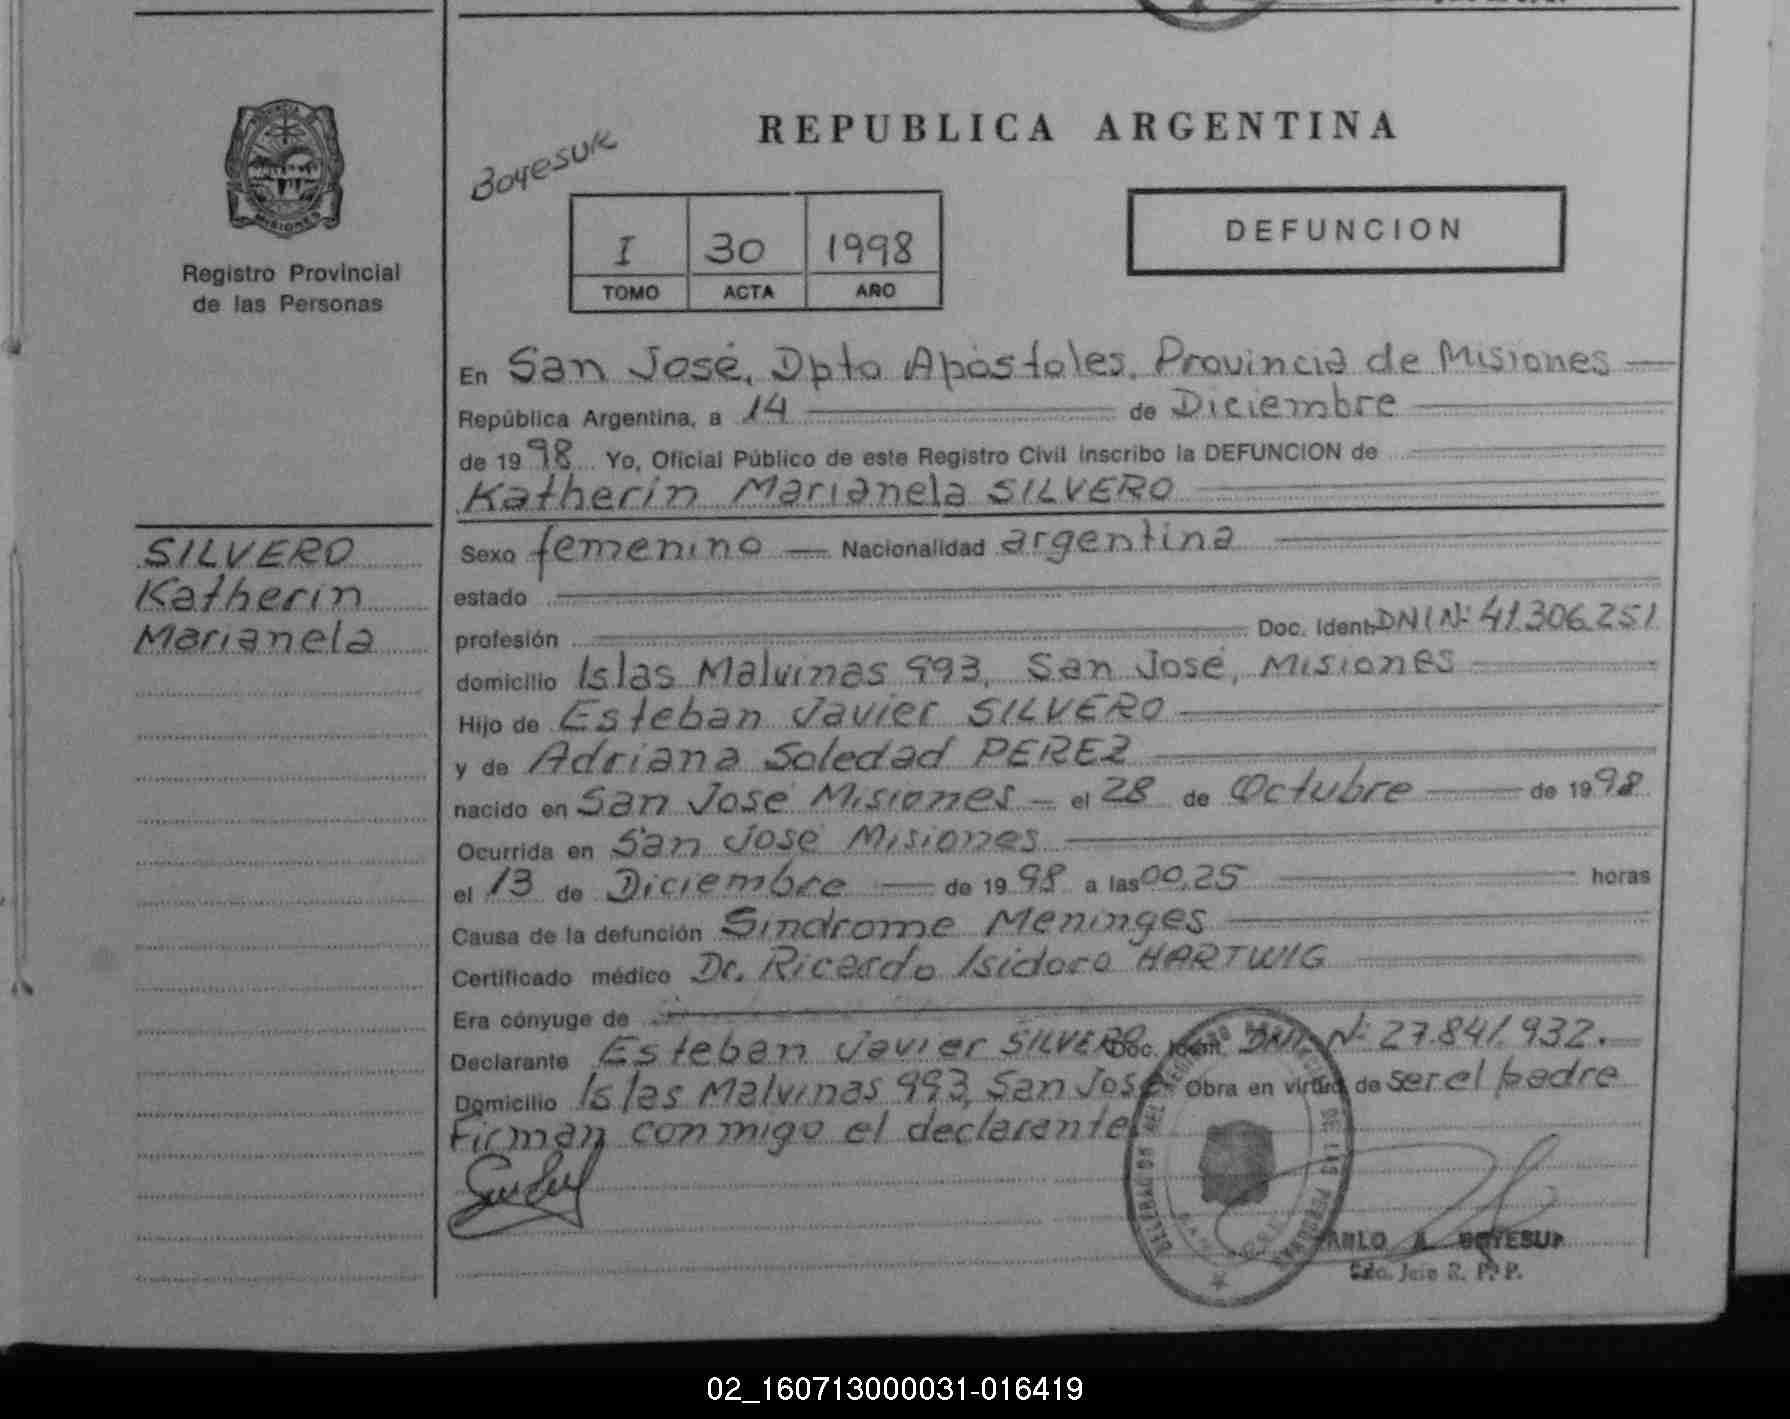 PROVINCIA DE
MISIONES
Registro Provincial
de las Personas
Boyesuk
REPUBLICA ARGENTINA
I 30 1998
TOMO ACTA AÑO
DEFUNCION
En San José, Dpto Apóstoles, Provincia de Misiones
República Argentina, a 14 de Diciembre
de 1998 Yo, Oficial Público de este Registro Civil inscribo la DEFUNCION de
Katherin Marianela SILVERO
SILVERO
Katherin
Marianela
Sexo femenino Nacionalidad argentina
estado
profesión Doc. Ident. DNI Nº 41.306.251
domicilio Islas Malvinas 993, San José, Misiones
Hijo de Esteban Javier SILVERO
y de Adriana Soledad PEREZ
nacido en San José Misiones el 28 de Octubre de 1998
Ocurrida en San José Misiones
el 13 de Diciembre de 1998 a las 00,25 horas
Causa de la defunción Síndrome Meninges
Certificado médico Dr. Ricardo Isidoro HARTWIG
Era cónyuge de
Declarante Esteban Javier SILVERO Doc. Ident. DNI Nº 27.841.932.
Domicilio Islas Malvinas 993, San José Obra en virtud de ser el padre
Firman conmigo el declarante
02_160713000031-016419